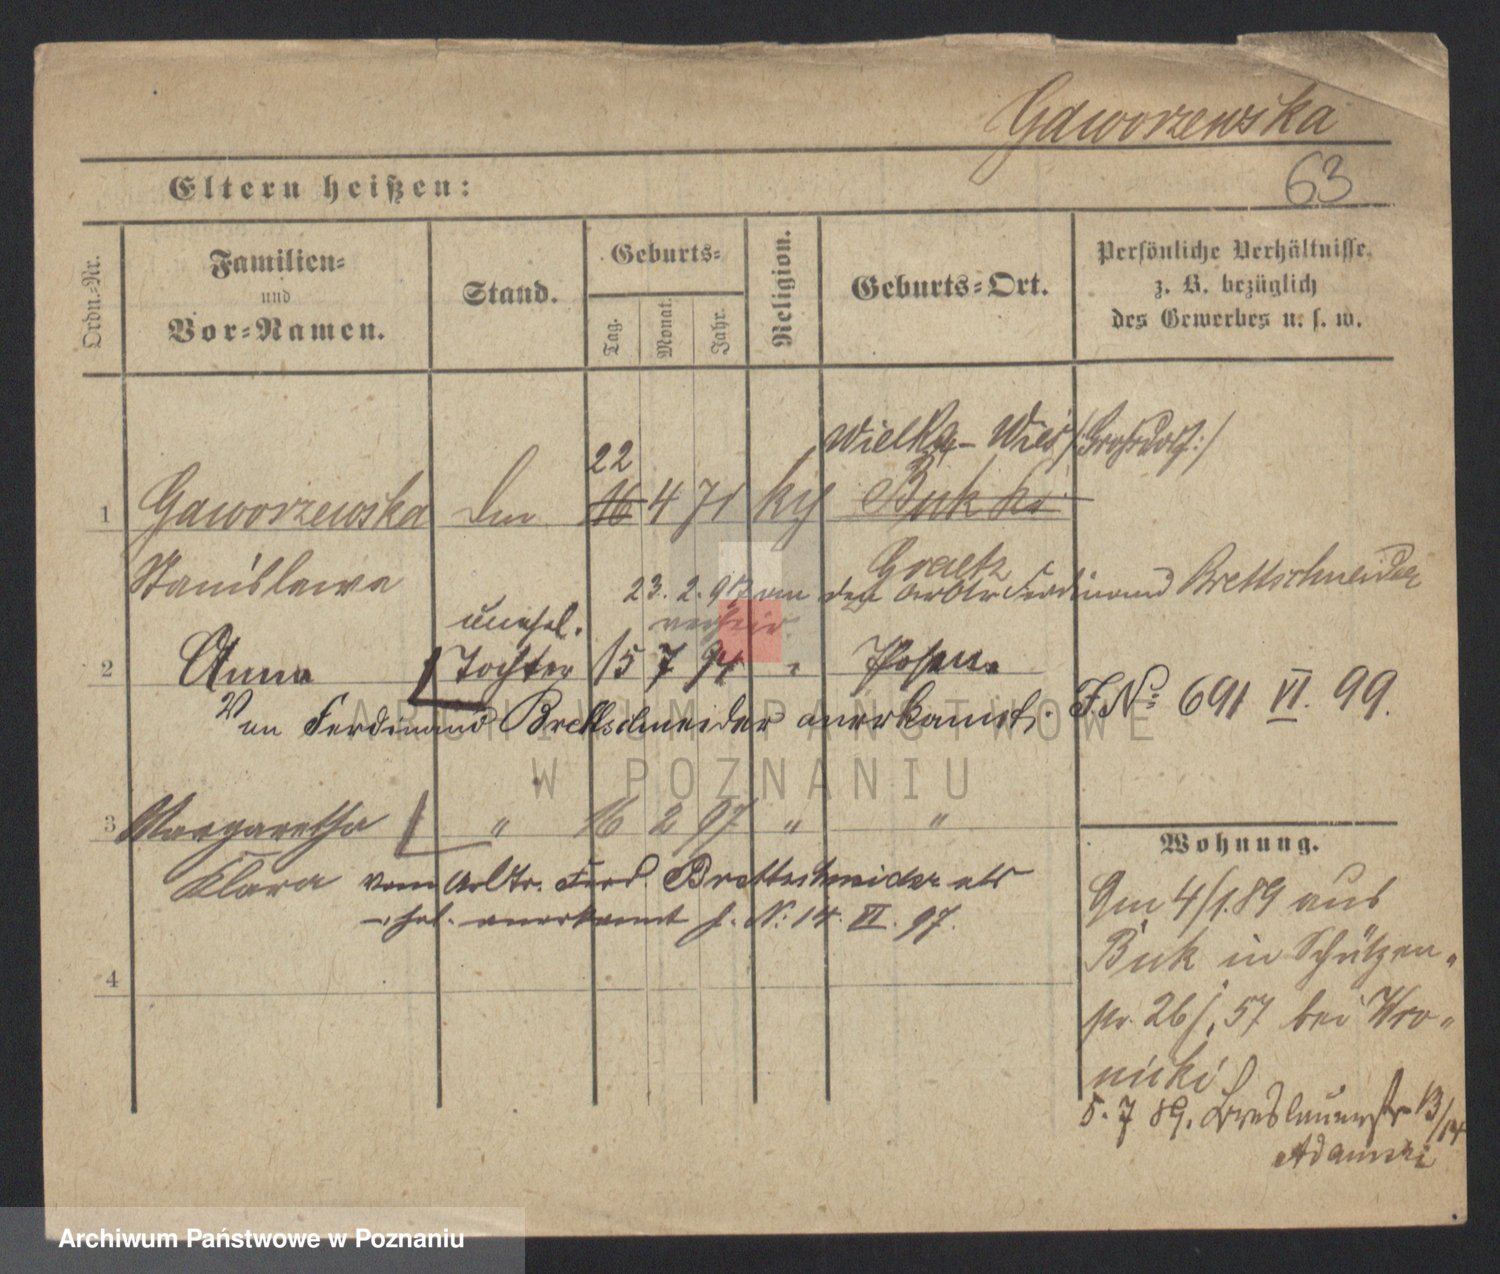 Gaworzewska
63
Eltern heißen:
Ordn.-Nr.
Familien-
und
Vor-Namen.
Stand.
Geburts-
Tag.
Monat.
Jahr.
Religion.
Geburts-Ort.
Persönliche Verhältnisse,
z. B. bezüglich
des Gewerbes u. s. w.
Wielka-Wieś /:Großdorf:/
22
1 Gaworzewska 16 4 71 ky Buk
Stanislawa
Graetz
23. 2. 97 den Arbtr Ferdinand Brettschneider
unehel.
2 Anna Tochter 15 7 94 " Posen.
Von Ferdinand Brettschneider anerkannt. J.No 691 VI. 99.
3 Margaretha " 16 2 97 " "
Klara vom Arbtr. Ferd. Brettschneider als
anerkannt J. N: 14. VI. 97.
4
Wohnung.
Am 4/1.89 aus
Buk in Schützen-
str. 26/ 57 bei Wro-
nicki
5. 7 89. Breslauerstr 13/14
Adamski
ARCHIWUM PAŃSTWOWE
W POZNANIU
Archiwum Państwowe w Poznaniu